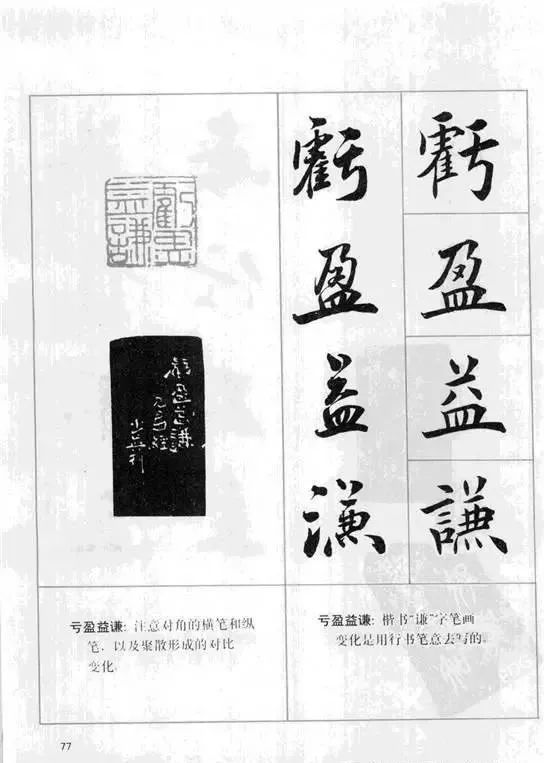 虧盈
益謙
虧盈益謙
虧
盈
益
謙
虧
盈
益
謙
亏盈益谦: 注意对角的横笔和纵
笔，以及聚散形成的对比
变化。
亏盈益谦: 楷书“谦”字笔画
变化是用行书笔意去写的。
77